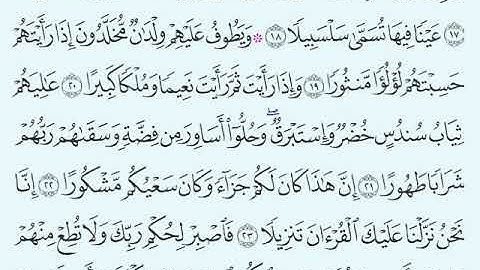 ١٧ عَيْنًا فِيهَا تُسَمَّىٰ سَلْسَبِيلًا ١٨ ۞ وَيَطُوفُ عَلَيْهِمْ وِلْدَٰنٌ مُّخَلَّدُونَ إِذَا رَأَيْتَهُمْ
حَسِبْتَهُمْ لُؤْلُؤًا مَّنثُورًا ١٩ وَإِذَا رَأَيْتَ ثَمَّ رَأَيْتَ نَعِيمًا وَمُلْكًا كَبِيرًا ٢٠ عَٰلِيَهُمْ
ثِيَابُ سُندُسٍ خُضْرٌ وَإِسْتَبْرَقٌ ۖ وَحُلُّوٓا۟ أَسَاوِرَ مِن فِضَّةٍ وَسَقَىٰهُمْ رَبُّهُمْ
شَرَابًا طَهُورًا ٢١ إِنَّ هَٰذَا كَانَ لَكُمْ جَزَآءً وَكَانَ سَعْيُكُم مَّشْكُورًا ٢٢ إِنَّا
نَحْنُ نَزَّلْنَا عَلَيْكَ ٱلْقُرْءَانَ تَنزِيلًا ٢٣ فَٱصْبِرْ لِحُكْمِ رَبِّكَ وَلَا تُطِعْ مِنْهُمْ